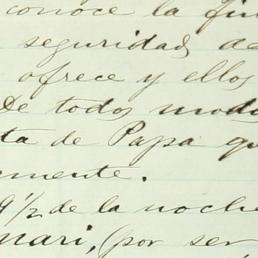 conoce la fin
seguridad de
ofrece y ellos
De todos modo
ta de Papa qu
mente.
9 1/2 de la noche
mari, (por ser